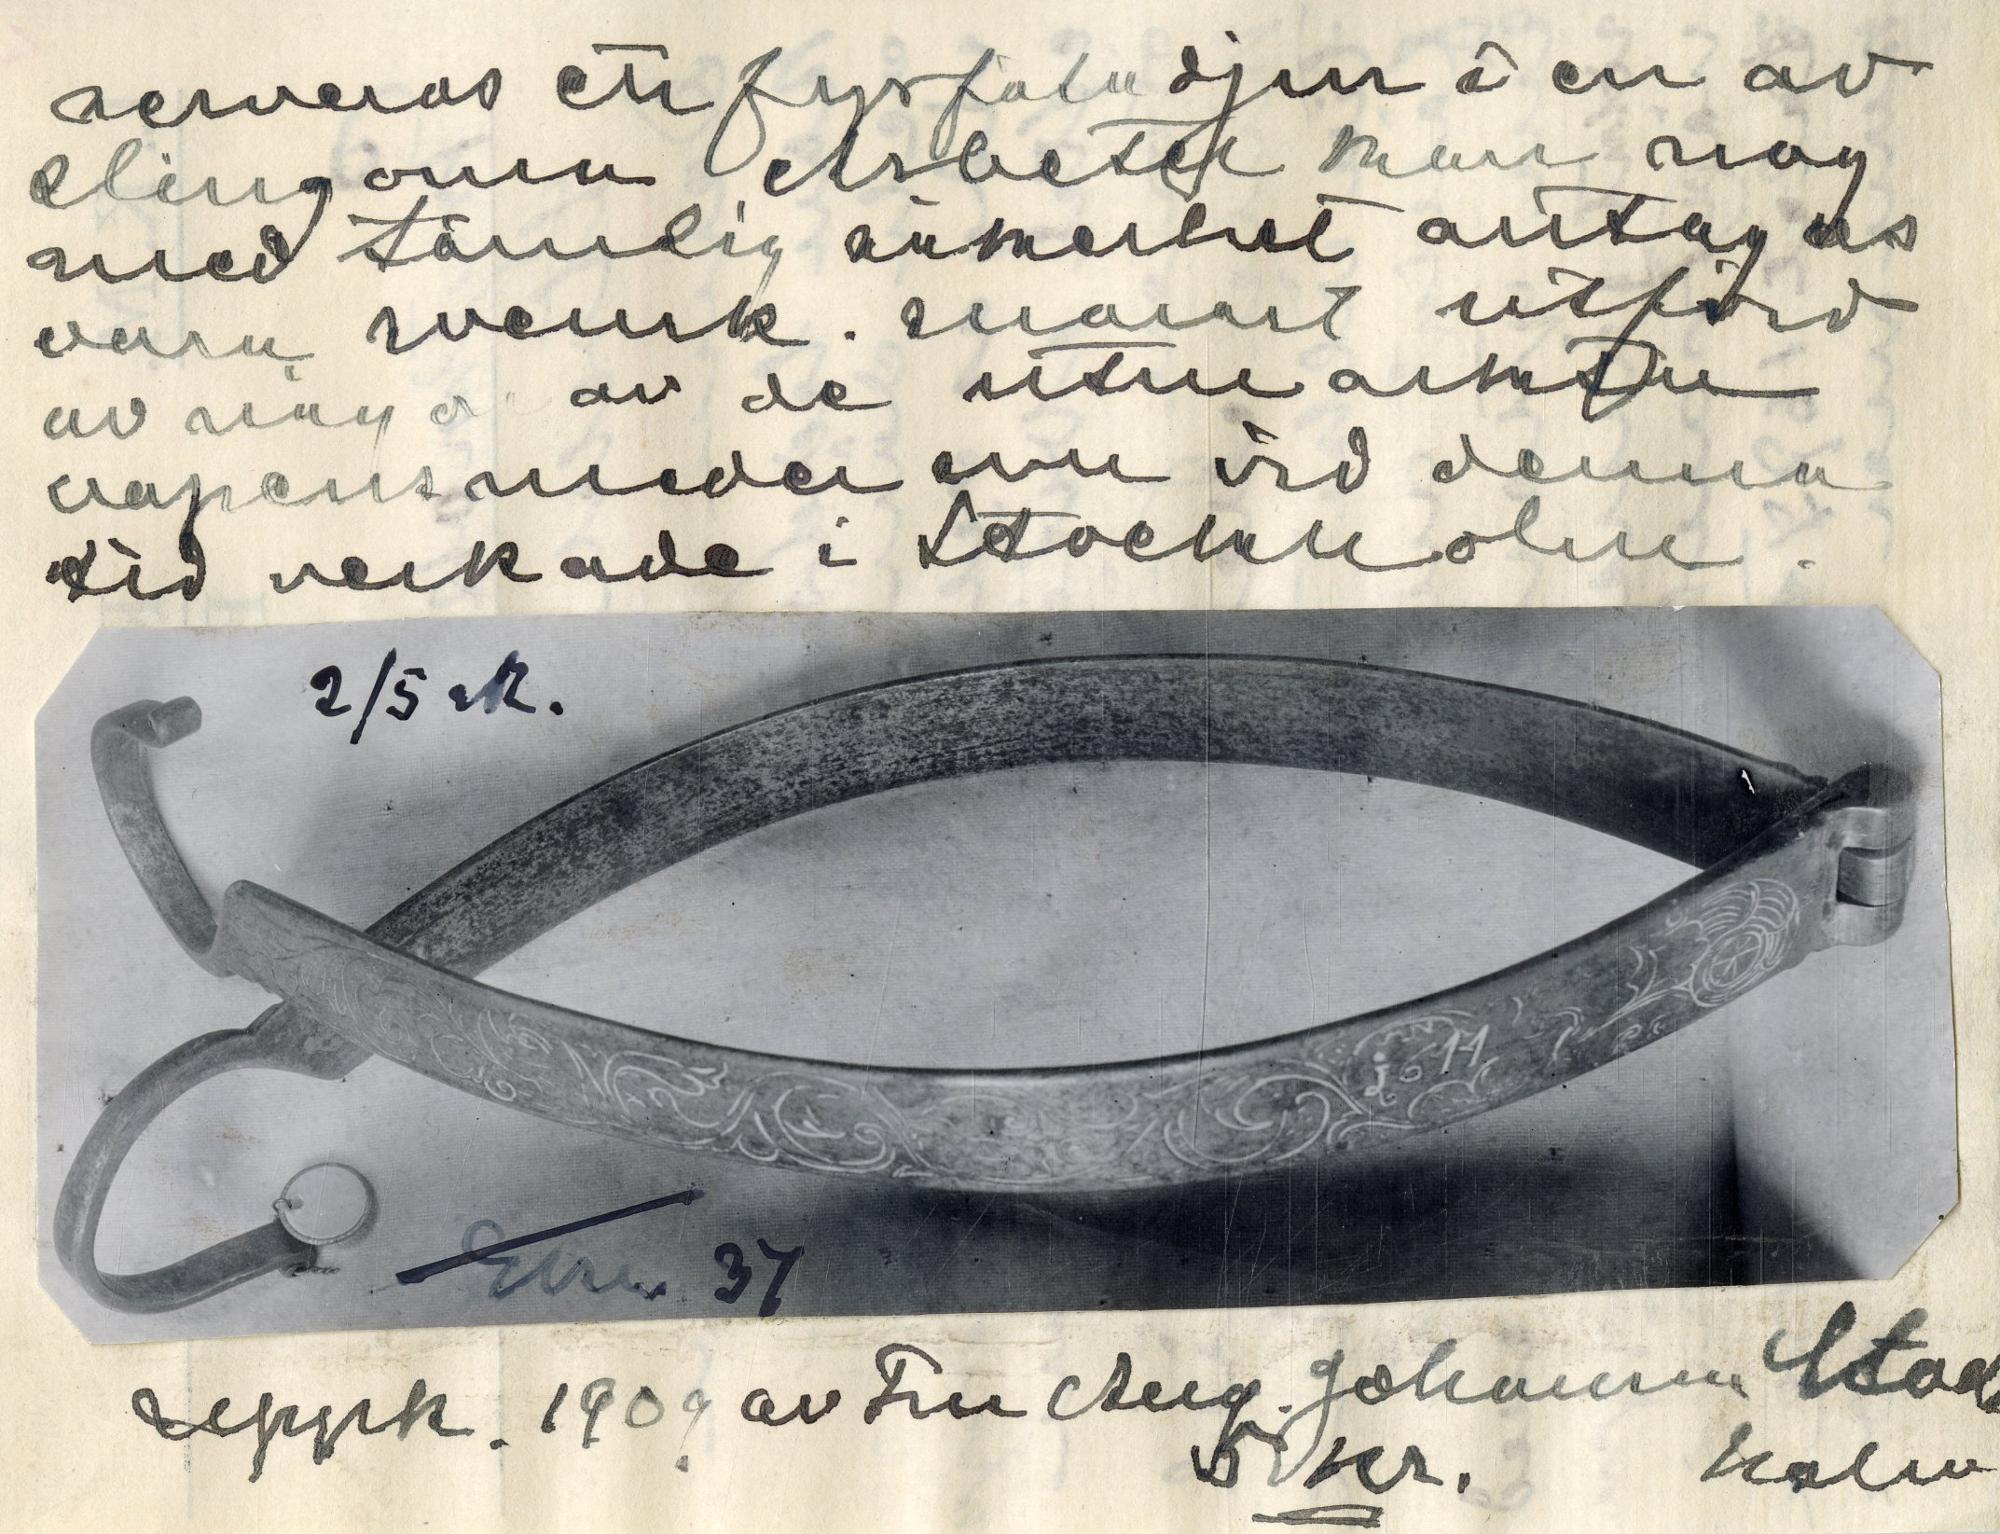 serveras ett fyrfota djur i en av
slingorna Arbetet kan nog
med tämlig säkerhet antagas
vara svensk. snarast utförd
av någo av de utmärkta
vapensmeder som vid denna
tid verkade i Stockholm.
2/5 nk.
j o H
37
uppk. 1909 av Fru Aug. Johanson Stock
5 Kr. holm